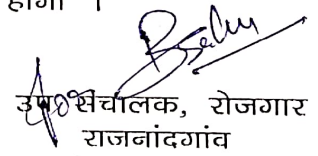 होगा ।
उप संचालक, रोजगार
राजनांदगांव